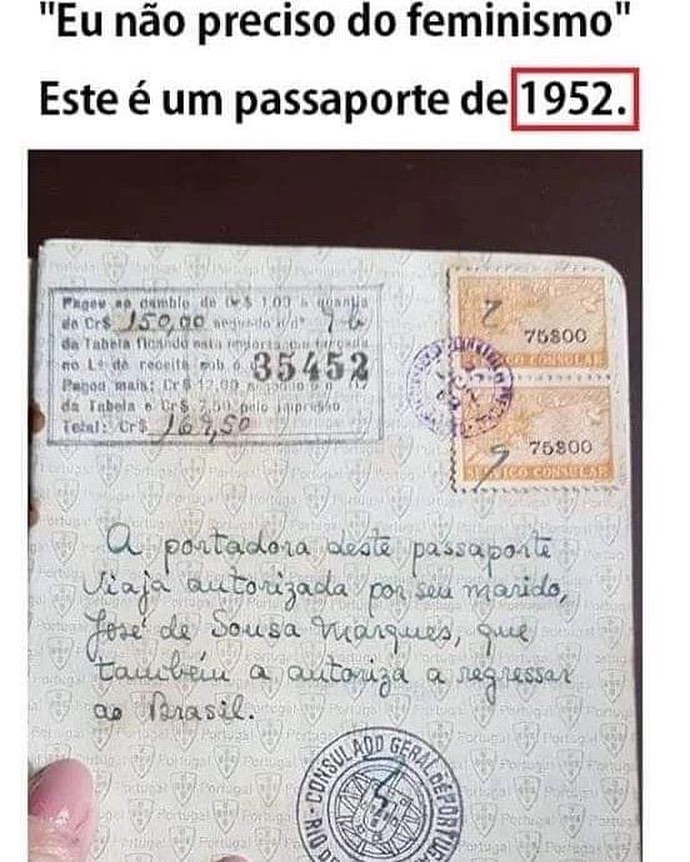 "Eu não preciso do feminismo"
Este é um passaporte de 1952.
Pagou ao cambio de Cr$ 1,00 a quantia
de Cr$ 150,00 segundo o nº 9 b
da Tabela ficando esta importancia lançada
no Lº de receita sob o 35452
Pagou mais: Cr$ 12,00
da Tabela e Cr$ 7,50 pelo impresso
Total: Cr$ 169,50
75$00
CONSULAR
75$00
SERVIÇO CONSULAR
A portadora deste passaporte
viaja autorizada por seu marido,
José de Sousa Marques, que
também a autoriza a regressar
ao Brasil.
CONSULADO GERAL DE PORTUGAL
RIO